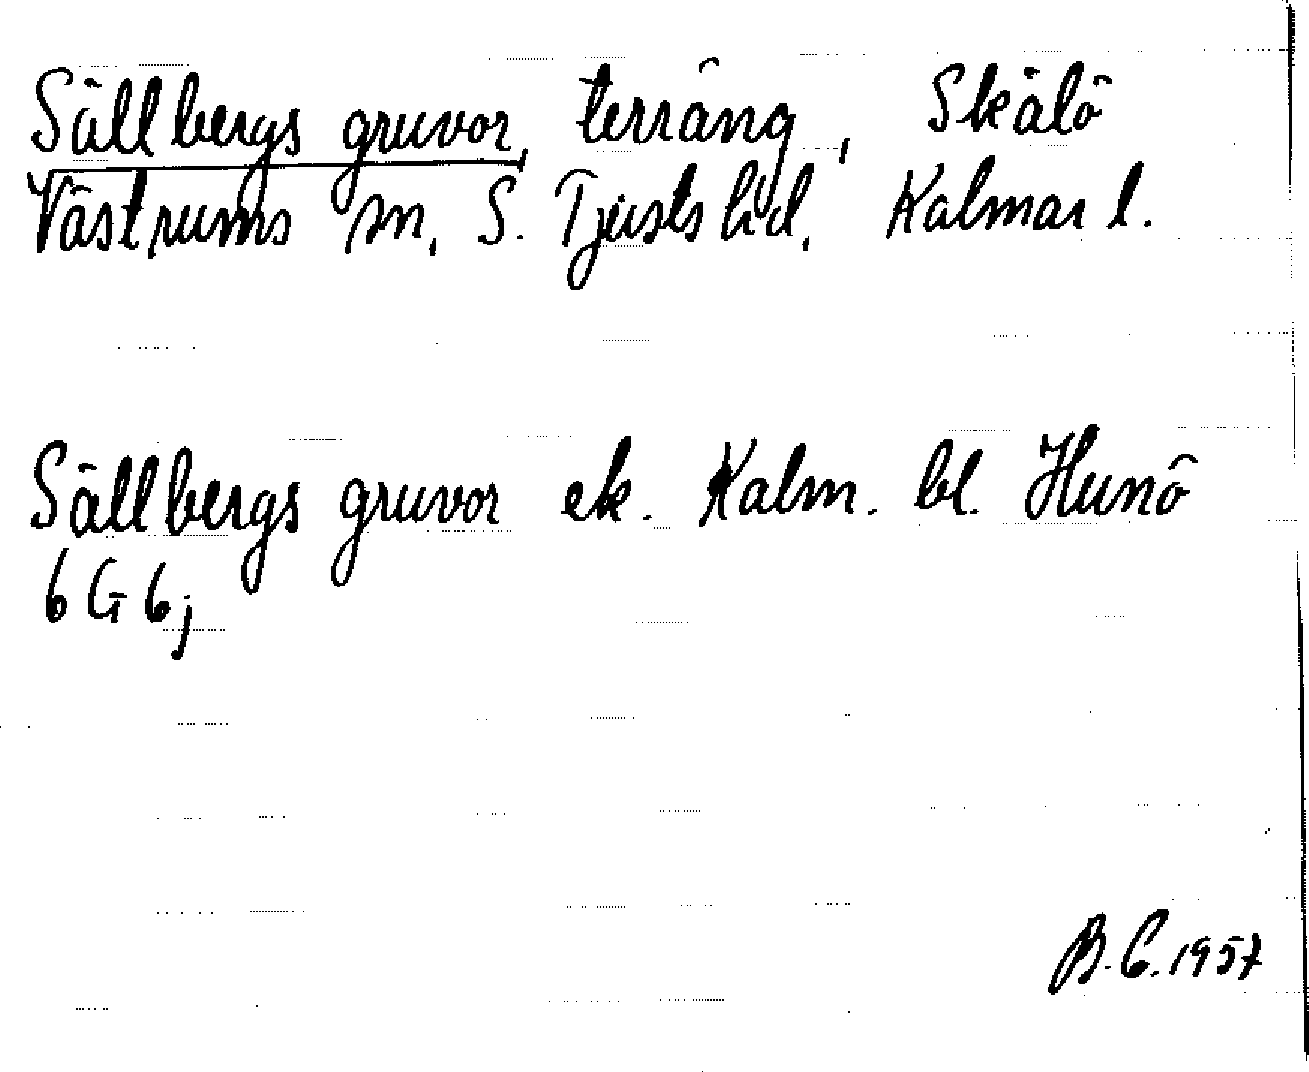 Sällbergs gruvor, terräng, Skälö
Västrums sn, S. Tjusts hd, Kalmar l.
Sällbergs gruvor ek. Kalm. bl. Hunö
6 G 6;
B.C. 1957